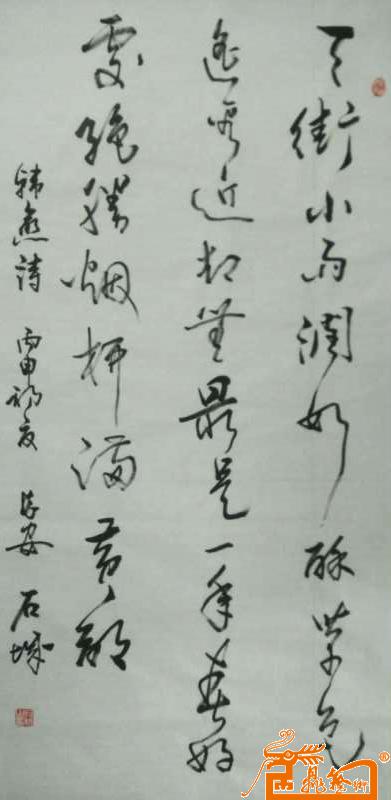 天街小雨潤如酥草色
遙看近却無最是一年春好
處絕勝烟柳滿黄都
韩愈詩 丙申初夏 長安 石城